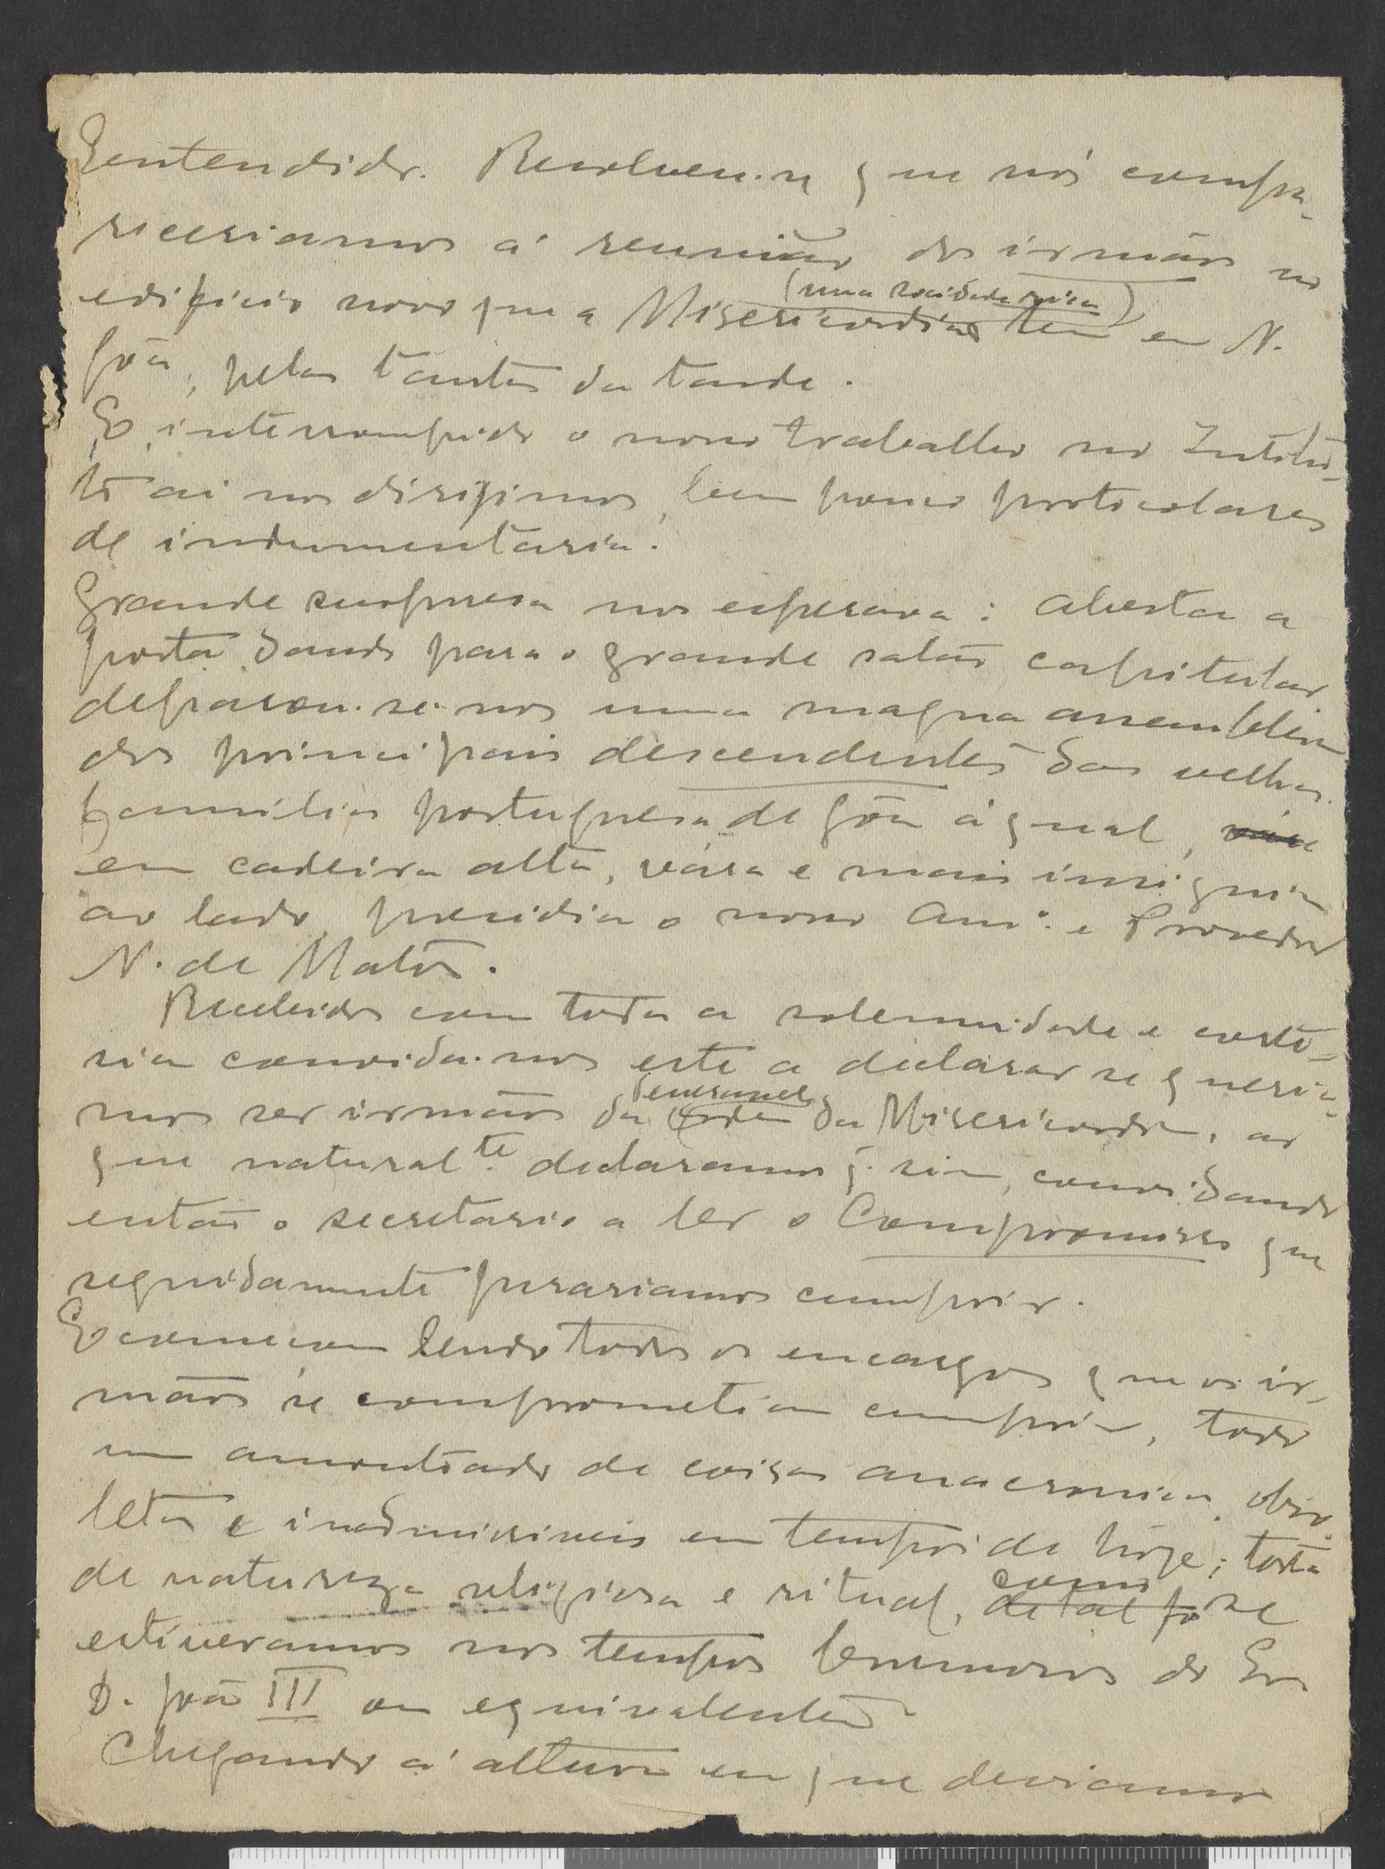 Eentendido. Resolveu-se que nós compa-
receriamos á reunião dos irmãos no
edificio novo que a Misericordia (uma sociedade rica) tem em N.
Gôa, pelas tantas da tarde.
E, interrompido o nosso trabalho no Institu-
to aí nos dirigimos, bem pouco protocolares
de indumentaria.
Grande surpresa nos esperava: aberta a
porta dando para o grande salão capitular
deparou-se-nos uma magna assembleia
dos principais descendentes das velhas
familias portuguesa de Gôa á qual,
em cadeira alta, vára e mais insignia
ao lado, presidia o nosso am.º e Provedor
N. de Matos.
Recebidos com toda a solemnidade e corte-
sia convida-nos este a declarar se queria-
mos ser irmãos da veneranda Ordem da Misericordia, ao
que natural.te declaramos q. sim, convidando
então o secretario a ler o Compromisso que
seguidamente jurariamos cumprir.
E começou lendo todos os encargos que os ir-
mãos se comprometiam cumprir, todo
um amontoado de coisas anacronicas, obso-
letas e inadmissiveis em tempos de hoje; toda
de natureza religiosa e ritual, como se
estiveramos nos tempos de
D. João III ou equivalentes.
Chegando á altura em que deviamos